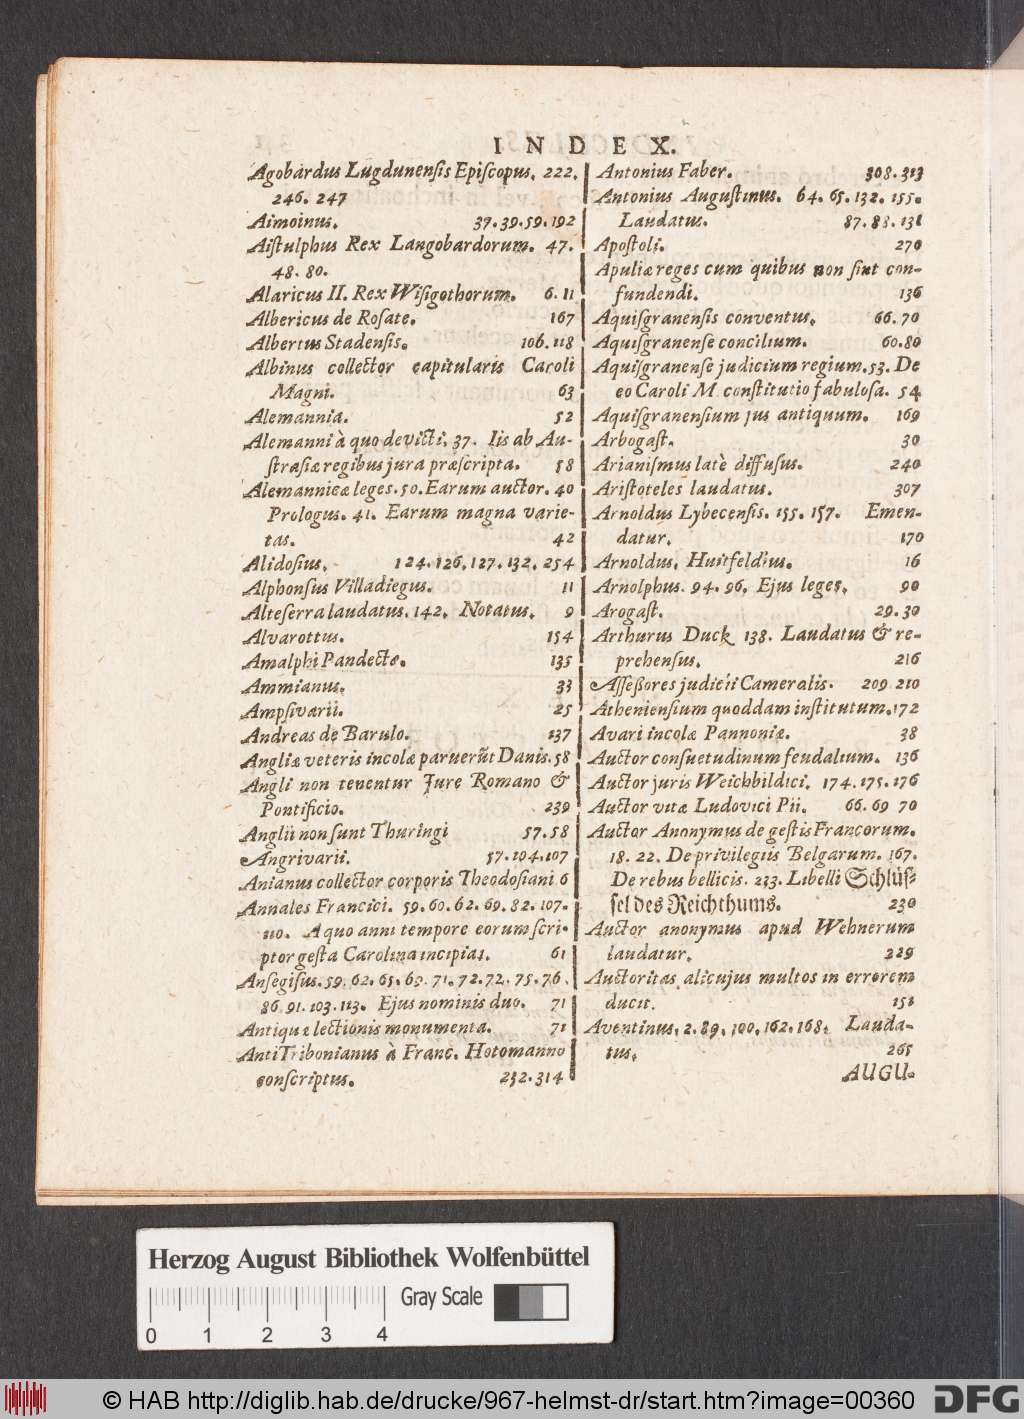 INDEX.
Agobardus Lugdunensis Episcopus. 222.
246. 247
Aimoinus. 37. 39. 59. 192
Aistulphus Rex Langobardorum. 47.
48. 80.
Alaricus II. Rex Wisigothorum. 6. 11
Albericus de Rosate. 167
Albertus Stadensis. 106. 118
Albinus collector capitularis Caroli
Magni. 63
Alemannia. 52
Alemanni à quo devicti. 37. Iis ab Au-
strasiæ regibus jura præscripta. 58
Alemannicæ leges. 50. Earum auctor. 40
Prologus. 41. Earum magna varie-
tas. 42
Alidosius. 124. 126. 127. 132. 254
Alphonsus Villadiegus. 11
Alteserra laudatus. 142. Notatus. 9
Alvarottus. 154
Amalphi Pandectæ. 135
Ammianus. 33
Ampsivarii. 25
Andreas de Barulo. 137
Angliæ veteris incolæ paruerũt Danis. 58
Angli non tenentur Jure Romano &
Pontificio. 239
Anglii non sunt Thuringi 57. 58
Angrivarii. 57. 104. 107
Anianus collector corporis Theodosiani 6
Annales Francici. 59. 60. 62. 69. 82. 107.
110. A quo anni tempore eorum scri-
ptor gesta Carolina incipiat. 61
Ansegisus. 59. 62. 65. 69. 71. 72. 72. 75. 76.
86. 91. 103. 113. Ejus nominis duo. 71
Antiquæ lectionis monumenta. 71
AntiTribonianus à Franc. Hotomanno
conscriptus. 252. 314
Antonius Faber. 308. 313
Antonius Augustinus. 64. 65. 132. 155.
Laudatus. 87. 88. 131
Apostoli. 270
Apuliæ reges cum quibus non sint con-
fundendi. 136
Aquisgranensis conventus. 66. 70
Aquisgranense concilium. 60. 80
Aquisgranense judicium regium. 53. De
eo Caroli M. constitutio fabulosa. 54
Aquisgranensium jus antiquum. 169
Arbogast. 30
Arianismus latè diffusus. 240
Aristoteles laudatus. 307
Arnoldus Lybecensis. 155. 157. Emen-
datur. 170
Arnoldus. Huitfeldius. 16
Arnolphus. 94. 96. Ejus leges. 90
Arogast. 29. 30
Arthurus Duck 138. Laudatus & re-
prehensus. 216
Assessores judicii Cameralis. 209 210
Atheniensium quoddam institutum. 172
Avari incolæ Pannoniæ. 38
Auctor consuetudinum feudalium. 136
Auctor juris Weichbildici. 174. 175. 176
Auctor vitæ Ludovici Pii. 66. 69 70
Auctor Anonymus de gestis Francorum.
18. 22. De privilegiis Belgarum. 167.
De rebus bellicis. 233. Libelli Schlüs-
sel des Reichthums. 230
Auctor anonymus apud Wehnerum
laudatur. 229
Auctoritas alicujus multos in errorem
ducit. 151
Aventinus. 2. 89. 100. 162. 168. Lauda-
tus. 265
AUGU-
Herzog August Bibliothek Wolfenbüttel
Gray Scale
0 1 2 3 4
© HAB http://diglib.hab.de/drucke/967-helmst-dr/start.htm?image=00360
DFG